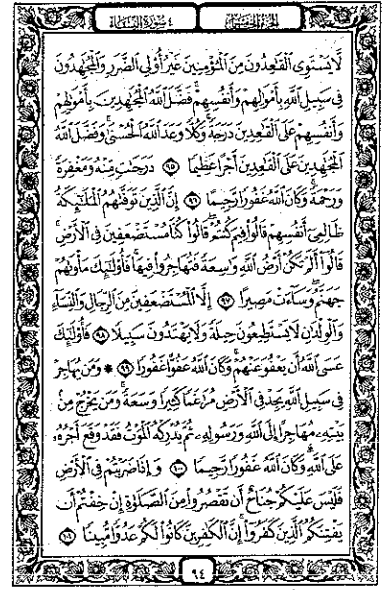 الجزء الخامس ٤ سورة النساء
لَّا يَسْتَوِى الْقَٰعِدُونَ مِنَ الْمُؤْمِنِينَ غَيْرُ أُو۟لِى الضَّرَرِ وَالْمُجَٰهِدُونَ
فِى سَبِيلِ اللَّهِ بِأَمْوَٰلِهِمْ وَأَنفُسِهِمْ ۚ فَضَّلَ اللَّهُ الْمُجَٰهِدِينَ بِأَمْوَٰلِهِمْ
وَأَنفُسِهِمْ عَلَى الْقَٰعِدِينَ دَرَجَةً ۚ وَكُلًّا وَعَدَ اللَّهُ الْحُسْنَىٰ ۚ وَفَضَّلَ اللَّهُ
الْمُجَٰهِدِينَ عَلَى الْقَٰعِدِينَ أَجْرًا عَظِيمًا ٩٥ دَرَجَٰتٍ مِّنْهُ وَمَغْفِرَةً
وَرَحْمَةً ۚ وَكَانَ اللَّهُ غَفُورًا رَّحِيمًا ٩٦ إِنَّ الَّذِينَ تَوَفَّىٰهُمُ الْمَلَٰٓئِكَةُ
ظَالِمِىٓ أَنفُسِهِمْ قَالُوا۟ فِيمَ كُنتُمْ ۖ قَالُوا۟ كُنَّا مُسْتَضْعَفِينَ فِى الْأَرْضِ ۚ
قَالُوٓا۟ أَلَمْ تَكُنْ أَرْضُ اللَّهِ وَٰسِعَةً فَتُهَاجِرُوا۟ فِيهَا ۚ فَأُو۟لَٰٓئِكَ مَأْوَىٰهُمْ
جَهَنَّمُ ۖ وَسَآءَتْ مَصِيرًا ٩٧ إِلَّا الْمُسْتَضْعَفِينَ مِنَ الرِّجَالِ وَالنِّسَآءِ
وَالْوِلْدَٰنِ لَا يَسْتَطِيعُونَ حِيلَةً وَلَا يَهْتَدُونَ سَبِيلًا ٩٨ فَأُو۟لَٰٓئِكَ
عَسَى اللَّهُ أَن يَعْفُوَ عَنْهُمْ ۚ وَكَانَ اللَّهُ عَفُوًّا غَفُورًا ٩٩ ۞ وَمَن يُهَاجِرْ
فِى سَبِيلِ اللَّهِ يَجِدْ فِى الْأَرْضِ مُرَٰغَمًا كَثِيرًا وَسَعَةً ۚ وَمَن يَخْرُجْ مِنۢ
بَيْتِهِۦ مُهَاجِرًا إِلَى اللَّهِ وَرَسُولِهِۦ ثُمَّ يُدْرِكْهُ الْمَوْتُ فَقَدْ وَقَعَ أَجْرُهُۥ
عَلَى اللَّهِ ۗ وَكَانَ اللَّهُ غَفُورًا رَّحِيمًا ١٠٠ وَإِذَا ضَرَبْتُمْ فِى الْأَرْضِ
فَلَيْسَ عَلَيْكُمْ جُنَاحٌ أَن تَقْصُرُوا۟ مِنَ الصَّلَوٰةِ إِنْ خِفْتُمْ أَن
يَفْتِنَكُمُ الَّذِينَ كَفَرُوٓا۟ ۚ إِنَّ الْكَٰفِرِينَ كَانُوا۟ لَكُمْ عَدُوًّا مُّبِينًا ١٠١
٩٤